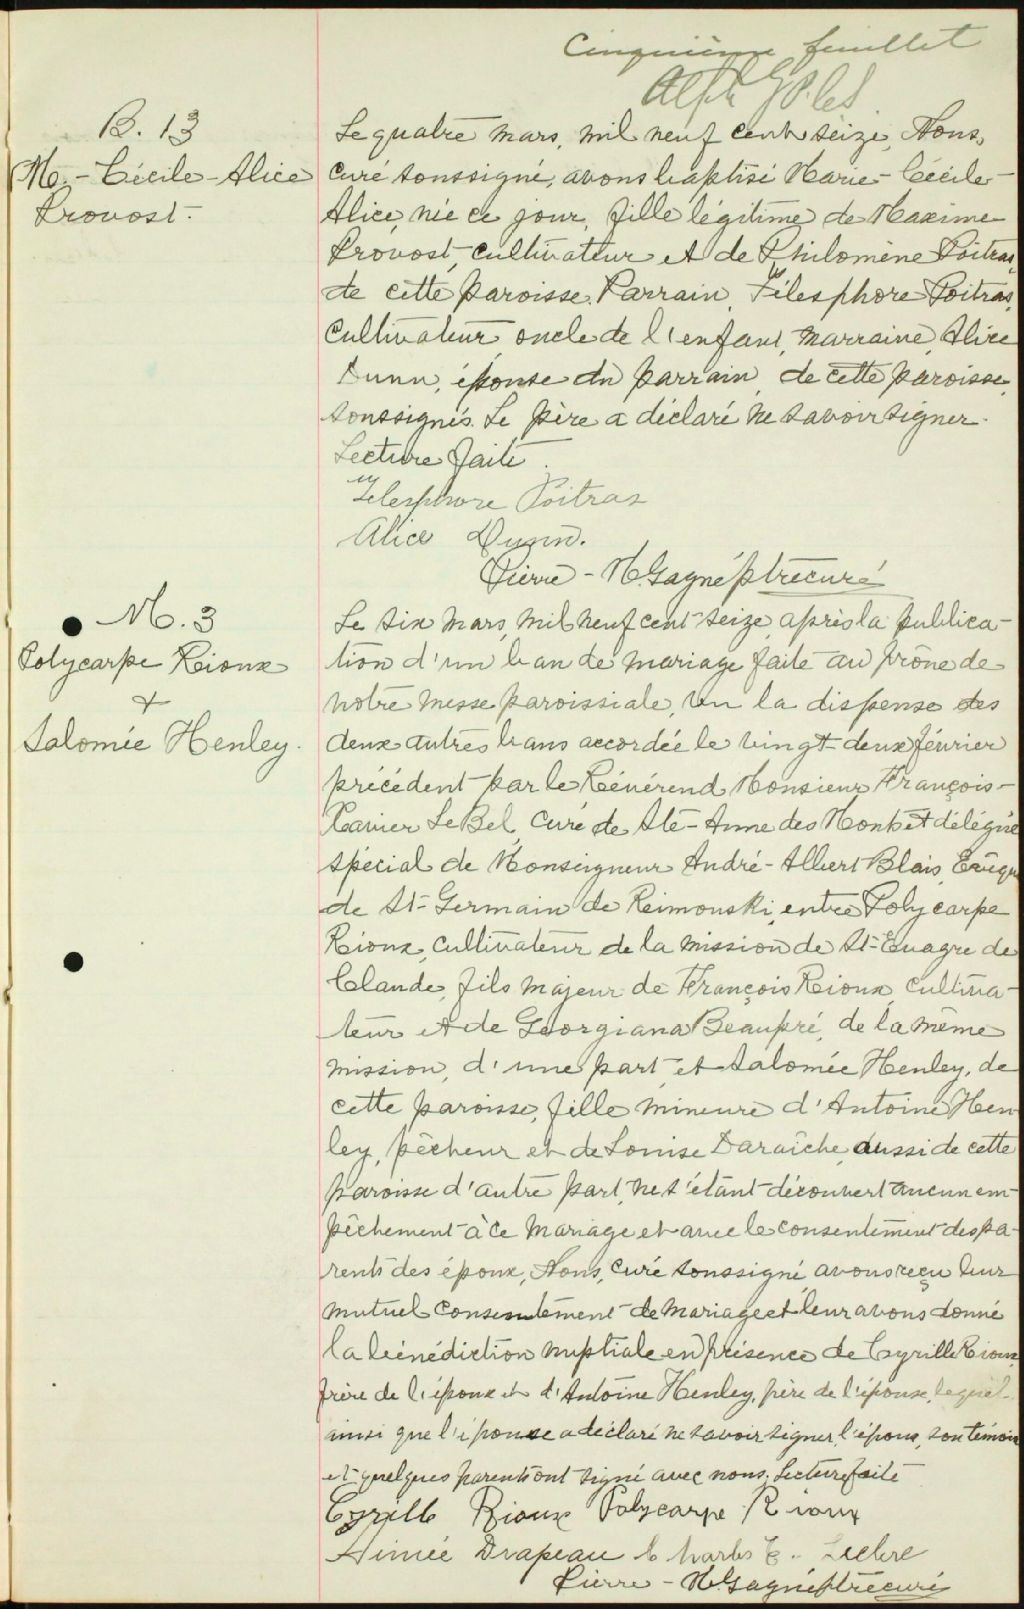 Cinquième feuillet
B. 13
M.-Cécile-Alice
Provost.
Le quatre mars, mil neuf cent seize, Nous,
curé soussigné, avons baptisé Marie-Cécile-
Alice, née ce jour, fille légitime de Maxime
Provost, cultivateur et de Philomène Poitras,
de cette paroisse. Parrain, Télesphore Poitras,
cultivateur, oncle de l'enfant, marraine, Alice
Dunn, épouse du parrain, de cette paroisse,
soussignés. Le père a déclaré ne savoir signer.
Lecture faite.
Telesphore Poitras
Alice Dunn.
Pierre-N. Gagné ptre curé
M. 3
Polycarpe Rioux
+
Salomée Henley.
Le six mars, mil neuf cent seize, après la publica-
tion d'un ban de mariage faite au prône de
notre messe paroissiale, vu la dispense des
deux autres bans accordée le vingt-deux février
précédent par le Révérend Monsieur François-
Xavier LeBel, curé de Ste-Anne des Monts et délégué
spécial de Monseigneur André-Albert Blais, Evêque
de St-Germain de Reimouski, entre Polycarpe
Rioux, cultivateur de la mission de St-Evagre de
Claude, fils majeur de François Rioux, cultiva-
teur et de Georgiana Beaupré, de la même
mission, d'une part, et Salomée Henley, de
cette paroisse, fille mineure d'Antoine Hen
ley, pêcheur et de Louise Daraîche, aussi de cette
paroisse d'autre part, ne s'étant découvert aucun em-
pêchement à ce mariage et avec le consentement des pa-
rents des époux, Nous, curé soussigné, avons reçu leur
mutuel consentement de mariage et leur avons donné
la bénédiction nuptiale en présence de Cyrille Rioux,
frère de l'époux et d'Antoine Henley, père de l'épouse, lequel
ainsi que l'épouse a déclaré ne savoir signer, l'époux, son témoin
et quelques parents ont signé avec nous. Lecture faite
Cyrille Rioux Polycarpe Rioux
Aimée Drapeau Charles E. Leclerc
Pierre-N. Gagné ptre curé